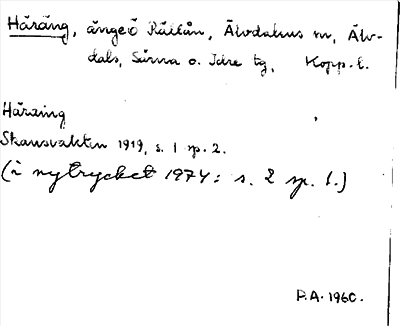 Häräng, ängeö Rällån, Älvdalens sn, Älv-
dals, Särna o. Idre tg, Kopp. l.
Häraing
Skansvakten 1919, s. 1 sp. 2.
(i nytrycket 1974: s. 2 sp. 1.)
P.A. 1960.